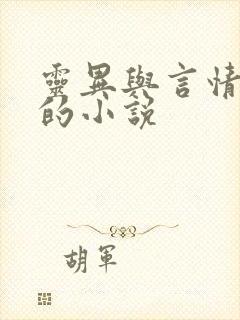 靈異與言情
的小説
胡軍